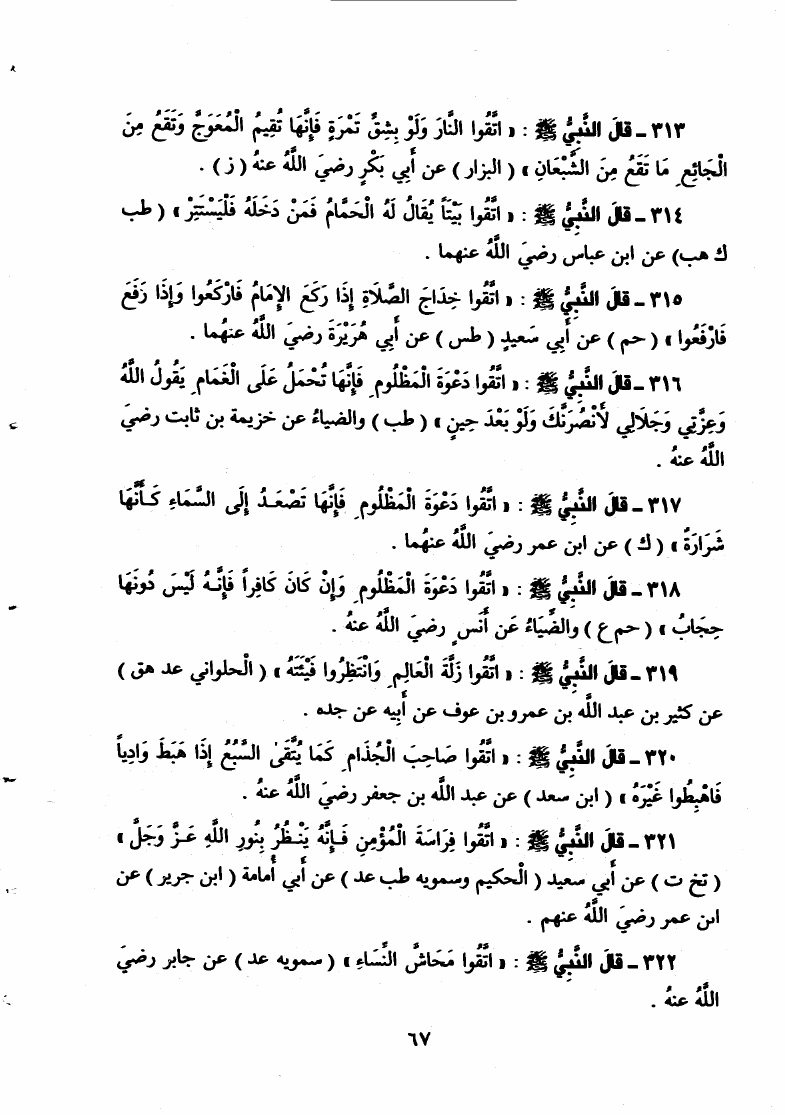 ٣١٣ ـ قالَ النَّبِيُّ ﷺ : « اتَّقُوا النَّارَ وَلَوْ بِشِقِّ تَمْرَةٍ فَإِنَّهَا تُقِيمُ الْمُعْوَجَّ وَتَقَعُ مِنَ
الْجَائِعِ مَا تَقَعُ مِنَ الشَّبْعَانِ » ( البزار ) عن أَبِي بَكْرٍ رضيَ اللَّهُ عنهُ ( ز ) .
٣١٤ ـ قالَ النَّبِيُّ ﷺ : « اتَّقُوا بَيْتاً يُقَالُ لَهُ الْحَمَّامُ فَمَنْ دَخَلَهُ فَلْيَسْتَتِرْ » ( طب
ك هب) عن ابن عباس رضيَ اللَّهُ عنهما .
٣١٥ ـ قالَ النَّبِيُّ ﷺ : « اتَّقُوا خِدَاجَ الصَّلَاةِ إِذَا رَكَعَ الإِمَامُ فَارْكَعُوا وَإِذَا رَفَعَ
فَارْفَعُوا » ( حم ) عن أَبِي سَعيدٍ ( طس ) عن أَبِي هُرَيْرَةَ رضيَ اللَّهُ عنهُما .
٣١٦ ـ قالَ النَّبِيُّ ﷺ : « اتَّقُوا دَعْوَةَ الْمَظْلُومِ فَإِنَّهَا تُحْمَلُ عَلَى الْغَمَامِ يَقُولُ اللَّهُ
وَعِزَّتِي وَجَلَالِي لَأَنْصُرَنَّكَ وَلَوْ بَعْدَ حِينٍ » ( طب ) والضياءُ عن خزيمة بن ثابت رضيَ
اللَّهُ عنهُ .
٣١٧ ـ قالَ النَّبِيُّ ﷺ : « اتَّقُوا دَعْوَةَ الْمَظْلُومِ فَإِنَّهَا تَصْعَدُ إِلَى السَّمَاءِ كَأَنَّهَا
شَرَارَةٌ » ( ك ) عن ابن عمر رضيَ اللَّهُ عنهُما .
٣١٨ ـ قالَ النَّبِيُّ ﷺ : « اتَّقُوا دَعْوَةَ الْمَظْلُومِ وَإِنْ كَانَ كَافِراً فَإِنَّهُ لَيْسَ دُونَهَا
حِجَابٌ » ( حم ع ) والضِّيَاءُ عَن أَنَسٍ رضيَ اللَّهُ عنهُ .
٣١٩ ـ قالَ النَّبِيُّ ﷺ : « اتَّقُوا زَلَّةَ الْعَالِمِ وَانْتَظِرُوا فَيْئَتَهُ » ( الحلواني عد هق )
عن كثير بن عبد اللَّه بن عمرو بن عوف عن أَبيه عن جده .
٣٢٠ ـ قالَ النَّبِيُّ ﷺ : « اتَّقُوا صَاحِبَ الْجُذَامِ كَمَا يُتَّقَى السَّبُعُ إِذَا هَبَطَ وَادِياً
فَاهْبِطُوا غَيْرَهُ » ( ابن سعد ) عن عبد اللَّه بن جعفر رضيَ اللَّهُ عنهُ .
٣٢١ ـ قالَ النَّبِيُّ ﷺ : « اتَّقُوا فِرَاسَةَ الْمُؤْمِنِ فَإِنَّهُ يَنْظُرُ بِنُورِ اللَّهِ عَزَّ وَجَلَّ »
( تخ ت ) عن أَبي سعيد ( الحكيم وسمويه طب عد ) عن أَبي أُمامة ( ابن جرير ) عن
ابن عمر رضيَ اللَّهُ عنهم .
٣٢٢ ـ قالَ النَّبِيُّ ﷺ : « اتَّقُوا مَحَاشَّ النِّسَاءِ » ( سمويه عد ) عن جابر رضيَ
اللَّهُ عنهُ .
٦٧